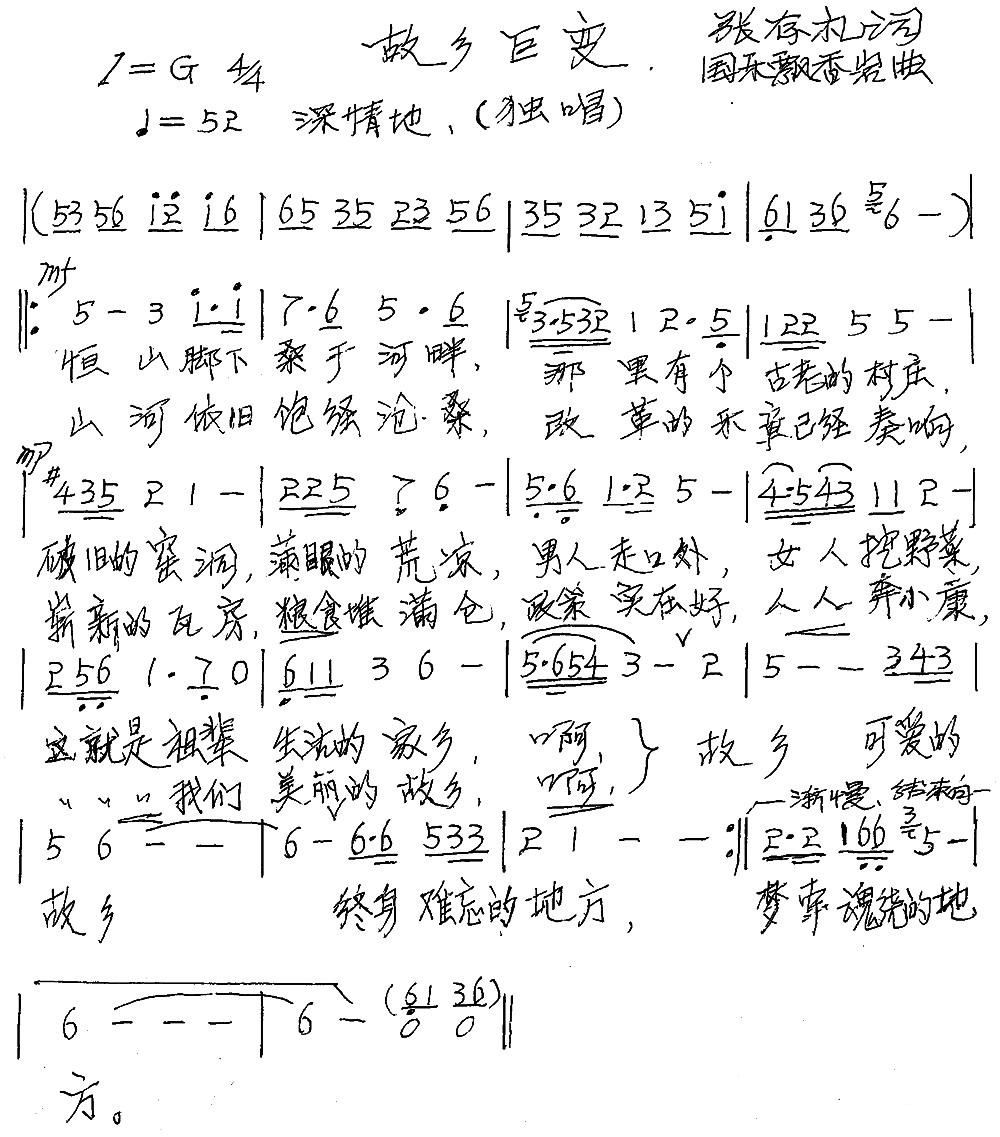 故乡巨变
张存礼词
国乐飘香岩曲
1=G 4/4
♩=52 深情地、(独唱)
|(53 56 i̇2̇ i̇6 | 65 35 23 56 | 35 32 13 5i̇ | 6̣1 36 5 6 - )|
mf
‖: 5 - 3 i̇·i̇ | 7·6 5·6 | 5 3·532 1 2·5̣ | 122 5 5 - |
恒山脚下 桑干河畔, 那里有个 古老的村庄,
山河依旧 饱经沧桑, 改革的乐章已经奏响,
mp
| #435 2 1 - | 225 7̣ 6̣ - | 5̣·6̣ 1·2 5 - | 4·543 11 2 - |
破旧的窑洞, 满眼的荒凉, 男人走口外, 女人挖野菜,
崭新的瓦房, 粮食堆满仓, 政策实在好, 人人奔小康,
| 25̣6̣ 1·7̣ 0 | 6̣11 3 6 - | 5·654 3 - 2 | 5 - - 343 |
这就是祖辈 生活的家乡, 啊, } 故乡 可爱的
〃 〃 〃 我们 美丽的故乡, 啊,
渐慢、结束句
| 5 6 - - | 6 - 6·6 533 | 2 1 - - :‖ 2·2 16̣6̣ 3 5 - |
故乡 终身难忘的地方, 梦牵魂绕的地
| 6 - - - | 6 - (6̣1 36) ‖
0 0
方。